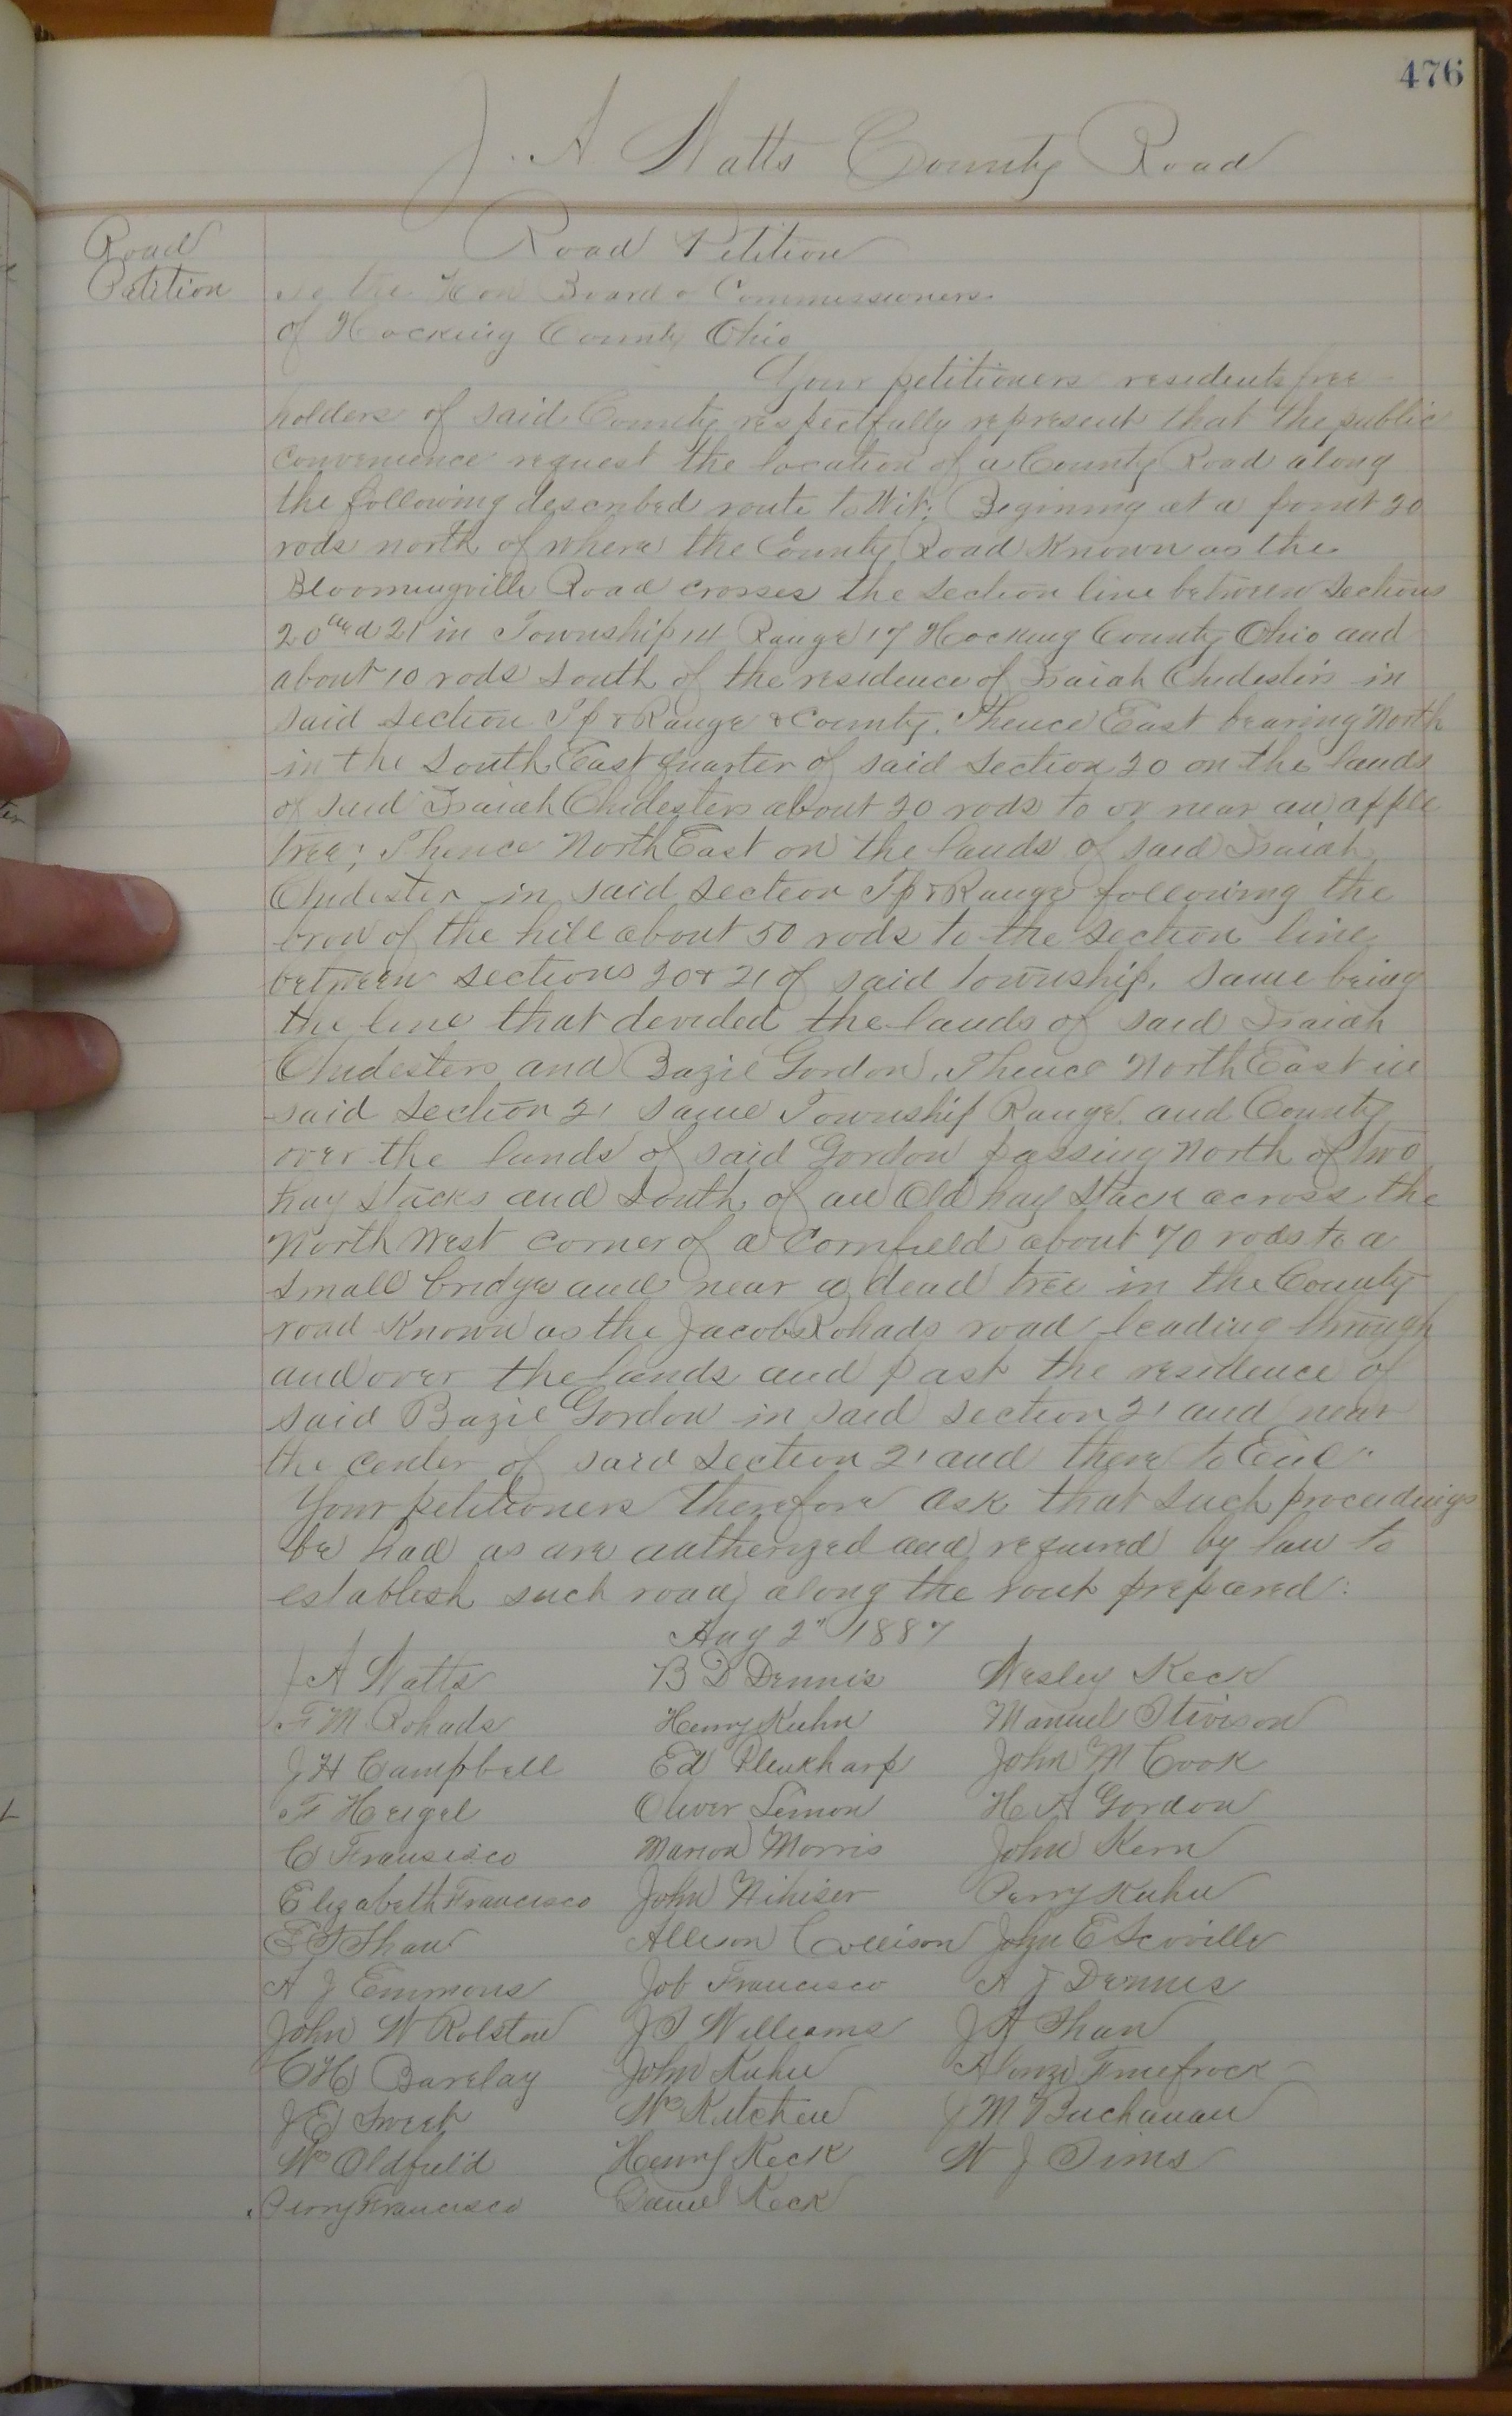 476
J. A. Watts County Road
Road Petition
Road Petition
To the Hon Board of Commissioners
of Hocking County Ohio
Your petitioners residents free
holders of said County respectfully represent that the public
convenience request the location of a County Road along
the following described route to Wit; Begining at a point 20
rods north of where the County Road Known as the
Bloomingville Road crosses the section line between sections
20 and 21 in Township 14 Range 17 Hocking County Ohio and
about 10 rods South of the residence of Isaiah Chidesters in
said section Tp & Range & County. Thence East bearing North
in the South East quarter of said section 20 on the lands
of said Isaiah Chidesters about 20 rods to or near an apple
tree; Thence North East on the lands of said Isaiah
Chidester in said section Tp & Range following the
brow of the hill about 50 rods to the section line
between sections 20 & 21 of said township, same being
the line that devided the lands of said Isaiah
Chidesters and Bazil Gordon, Thence North East in
said section 21 same Township Range and County
over the lands of said Gordon passing North of two
hay stacks and South of an Old hay stack across the
North West corner of a Cornfield about 70 rods to a
small bridge and near a dead tree in the County
road Known as the Jacob Rohads road leading through
and over the lands and past the residence of
said Bazil Gordon in said section 21 and near
the center of said section 21 and there to End.
Your petitioners therefore ask that such proceedings
be had as are autherized and required by law to
establish such road along the rout prepared:
Aug 2" 1887
J A Watts B D Dennis Wesley Keck
F M Rohads Henry Kuhn Manuel Stivison
J H Campbell Ed Plenkharp John M Cook
F Heigel Oliver Lemon H A Gordon
C Fransisco Marion Morris John Kern
Elizabeth Francisco John Nihiser Perry Kuhn
E T Shaw Allison Collison John E Scoville
A J Emmons Job Francisco A J Dennis
John W Rolston J T Williams J A Shaw
C H Barclay John Kuhn Alonzo Fruefrock
J E Sweet Wm Kitchen J M Buchanan
Wm Oldfield Henry Keck W J Sims
Perry Francisco Daniel Keck